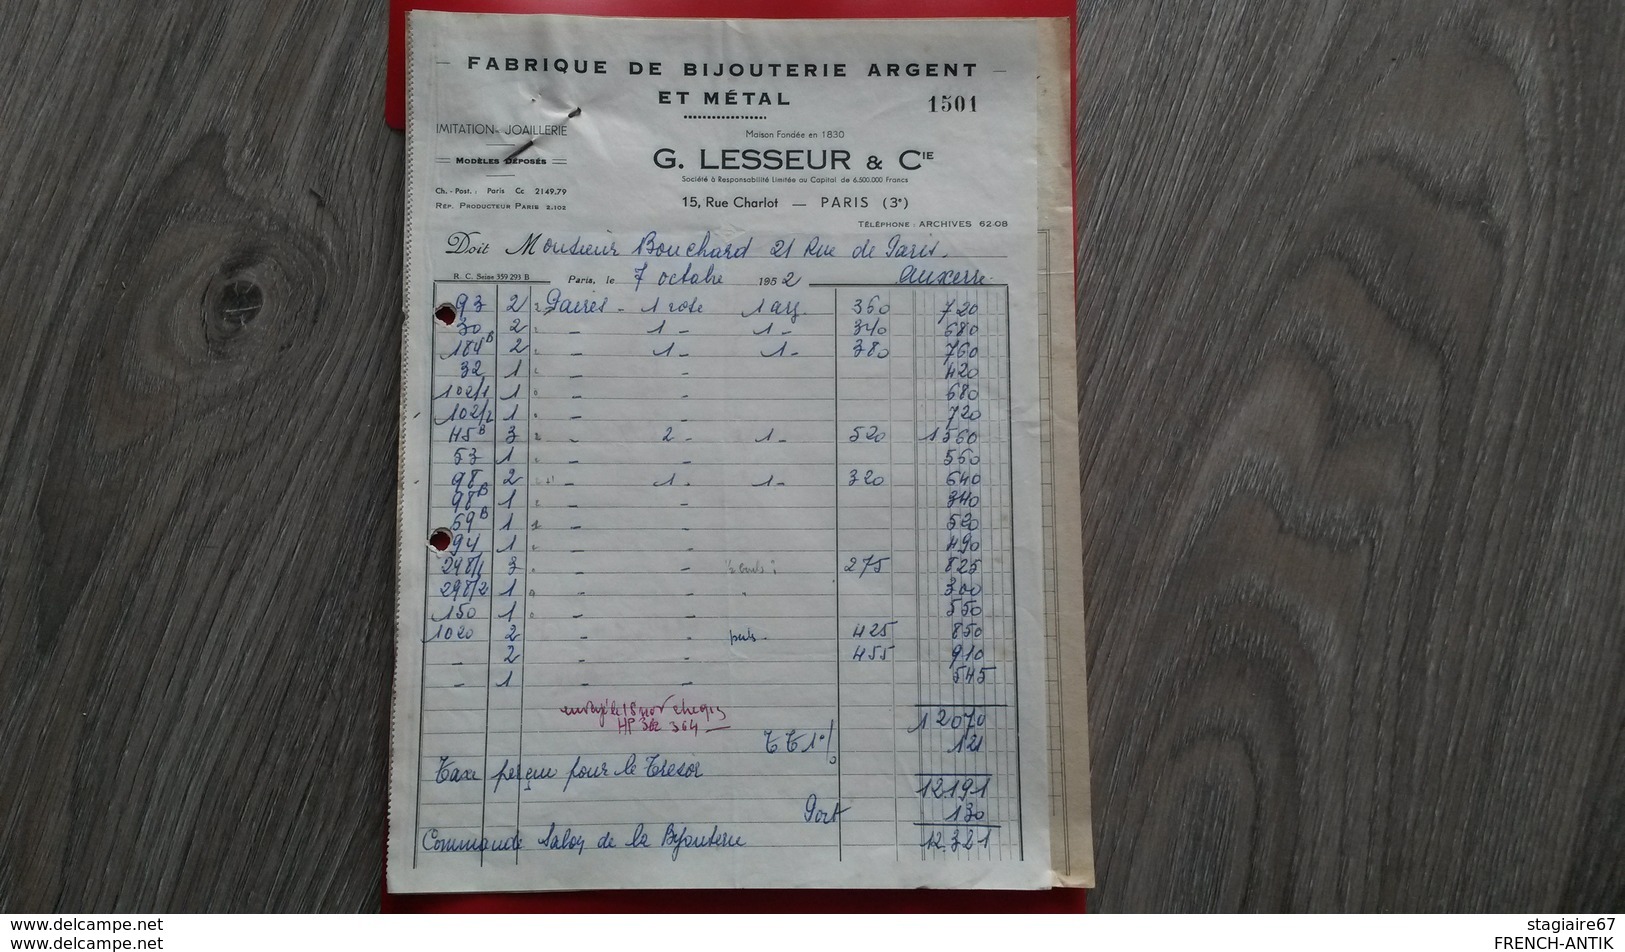 FABRIQUE DE BIJOUTERIE ARGENT
ET MÉTAL
1501
IMITATION - JOAILLERIE
Maison Fondée en 1830
MODÈLES DÉPOSÉS
G. LESSEUR & CIE
Société à Responsabilité Limitée au Capital de 6.500.000 Francs
Ch. - Post. : Paris Cc 2149.79
RÉP. PRODUCTEUR PARIS 2.102
15, Rue Charlot — PARIS (3e)
TÉLÉPHONE : ARCHIVES 62-08
Doit Monsieur Bouchard 21 Rue de Paris.
R. C. Seine 359 293 B Paris, le 7 octobre 1952 Auxerre.
93 2 Paires - 1 rose 1 arg. 360 720
30 2 - 1 - 1 - 340 680
184B 2 - 1 - 1 - 380 760
32 1 - - 420
102/1 1 - - 680
102/2 1 - - 720
45B 3 - 2 - 1 - 520 1560
53 1 - - 560
98 2 - 1 - 1 - 320 640
98B 1 - - 340
59B 1 - - 520
94 1 - - 490
298/1 3 - - 275 825
298/2 1 - - 300
150 1 - - 550
1020 2 - - 425 850
- 2 - - 455 910
- 1 - - 545
12070
TT1% 121
Taxe perçue pour le Trésor
12191
Port 130
Commande Salon de la Bijouterie 12.321
stagiaire67
www.delcampe.net
stagiaire67
FRENCH-ANTIK